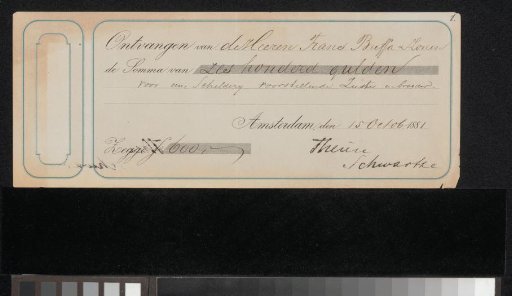 1.
Ontvangen van de Heeren Frans Buffa & Zonen
de Somma van Zes honderd gulden
voor een schilderij voorstellende Zuster en broer.
Amsterdam, den 15 Octob 1881
Zegge ƒ 600,-
Thérèse
Schwartze